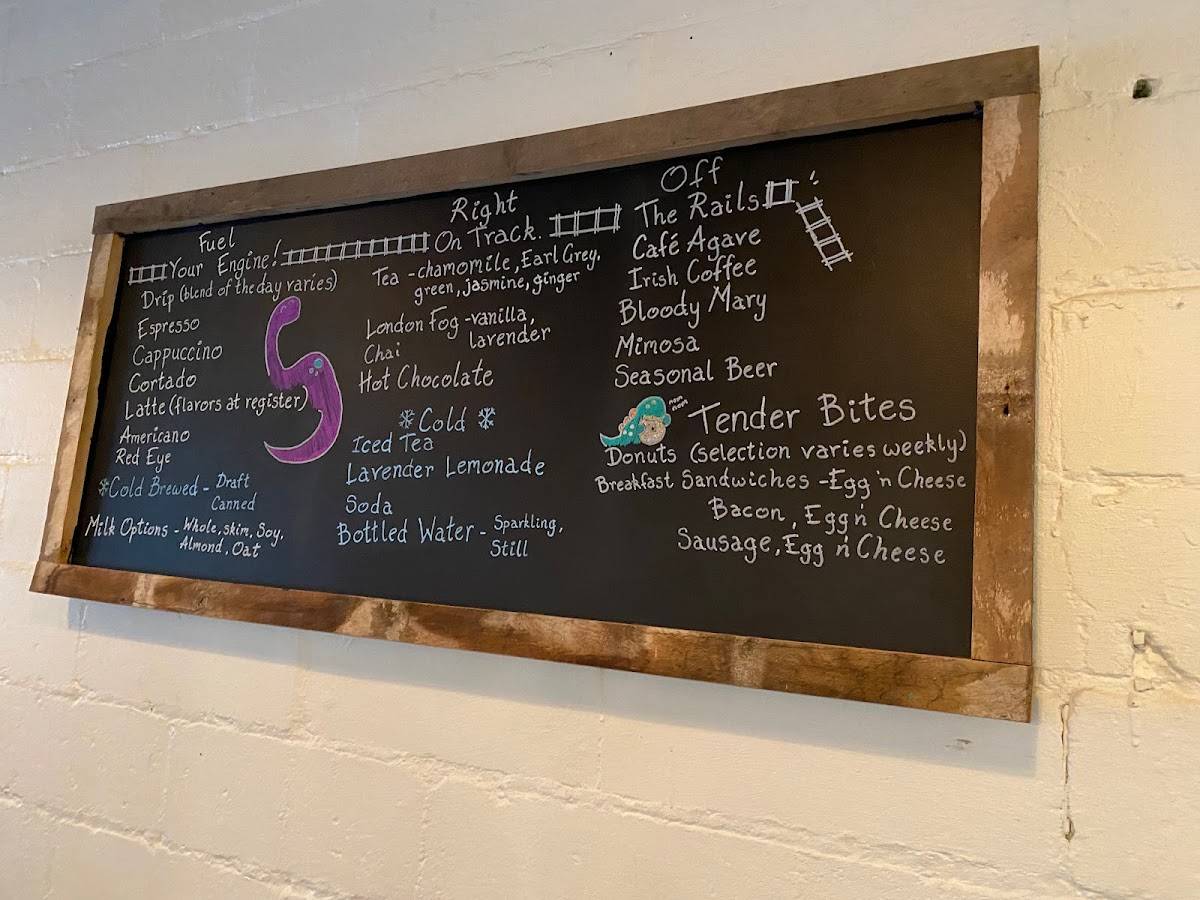 Fuel
Your Engine!
Drip (blend of the day varies)
Espresso
Cappuccino
Cortado
Latte (flavors at register)
Americano
Red Eye
Cold Brewed - Draft
Canned
Milk Options - Whole, skim, Soy,
Almond, Oat
Right
On Track.
Tea - chamomile, Earl Grey,
green, jasmine, ginger
London Fog - vanilla,
lavender
Chai
Hot Chocolate
Cold
Iced Tea
Lavender Lemonade
Soda
Bottled Water - Sparkling,
Still
Off
The Rails!
Café Agave
Irish Coffee
Bloody Mary
Mimosa
Seasonal Beer
nom
nom
Tender Bites
Donuts (Selection varies weekly)
Breakfast Sandwiches - Egg 'n Cheese
Bacon, Egg 'n' Cheese
Sausage, Egg 'n' Cheese